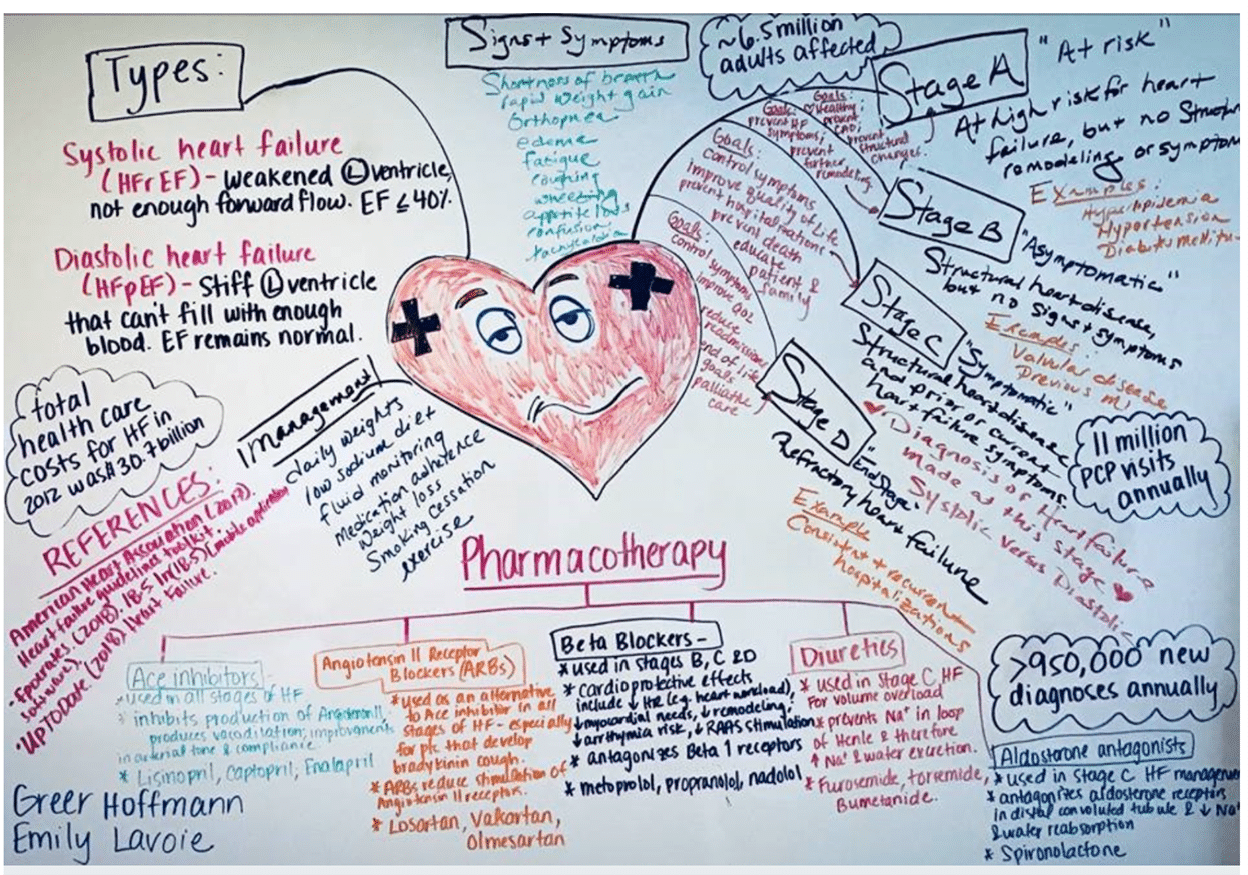 Types:
Systolic heart failure
(HFrEF) - weakened Ⓛ ventricle,
not enough forward flow. EF ≤ 40%.
Diastolic heart failure
(HFpEF) - Stiff Ⓛ ventricle
that can't fill with enough
blood. EF remains normal.
Signs + Symptoms
Shortness of breath
rapid weight gain
Orthopnea
edema
fatigue
coughing
wheezing
appetite loss
confusion
tachycardia
~6.5 million
adults affected
Stage A
"At risk"
At high risk for heart
failure, but no Structural
remodeling or symptom
Examples:
Hyperlipidemia
Hypertension
Diabetes mellitu-
Goals:
♡ Healthy;
prevent
CAD;
prevent
structural
changes.
Stage B
"Asymptomatic"
Structural heart disease,
but no signs + symptoms
Examples:
Valvular disease
Previous MI
Goals:
prevent HF
symptoms;
prevent
further
remodeling
Stage C
"Symptomatic"
Structural heart disease
and prior or current
heart failure symptoms.
♥ Diagnosis of Heart failure
made at this stage ♥
Systolic versus Diastolic
Goals:
control symptoms
improve quality of Life
prevent hospitalizations
prevent death
educate
patient &
family
Stage D
"End Stage"
Refractory heart failure
Example
Consistent + recurrent
hospitalizations
Goals:
control symptoms
improve QOL
reduce
readmissions
end of life
goals
palliative
care
11 million
PCP visits
annually
total
health care
costs for HF in
2012 was $30.7 billion
Management
daily weights
low sodium diet
fluid monitoring
Medication adherence
Weight loss
Smoking Cessation
exercise
REFERENCES:
American Heart Association (2017).
Heart failure guidelines toolkit.
Epocrates. (2018). 18.5.1r(18.5) (mobile application
software).
UpToDate. (2018). Heart Failure.
Pharmacotherapy
Ace inhibitors -
* used in all stages of HF
* inhibits production of Angiotensin II,
produces vasodilation; improvements
in arterial tone & compliance.
* Lisinopril, Captopril, Enalapril
Angiotensin II Receptor
Blockers (ARBs)
* used as an alternative
to Ace inhibitor in all
stages of HF - especially
for ptc that develop
bradykinin cough.
* ARBs reduce stimulation of
Angiotensin II receptors.
* Losartan, Valsartan,
Olmesartan
Beta Blockers -
* used in stages B, C & D
* cardioprotective effects
include ↓ HR (e.g. heart workload),
↓ myocardial needs, ↓ remodeling,
↓ arrhythmia risk, ↓ RAAS stimulation
* antagonizes Beta 1 receptors
* metoprolol, propranolol, nadolol
Diuretics
* used in Stage C HF
For volume overload
* prevents Na⁺ in loop
of Henle & therefore
↑ Na⁺ & water excretion.
* Furosemide, torsemide,
Bumetanide.
>950,000 new
diagnoses annually
Aldosterone antagonists
* used in stage C HF managemen
* antagonizes aldosterone receptors
in distal convoluted tubule & ↓ Na⁺
& water reabsorption
* Spironolactone
Greer Hoffmann
Emily Lavoie